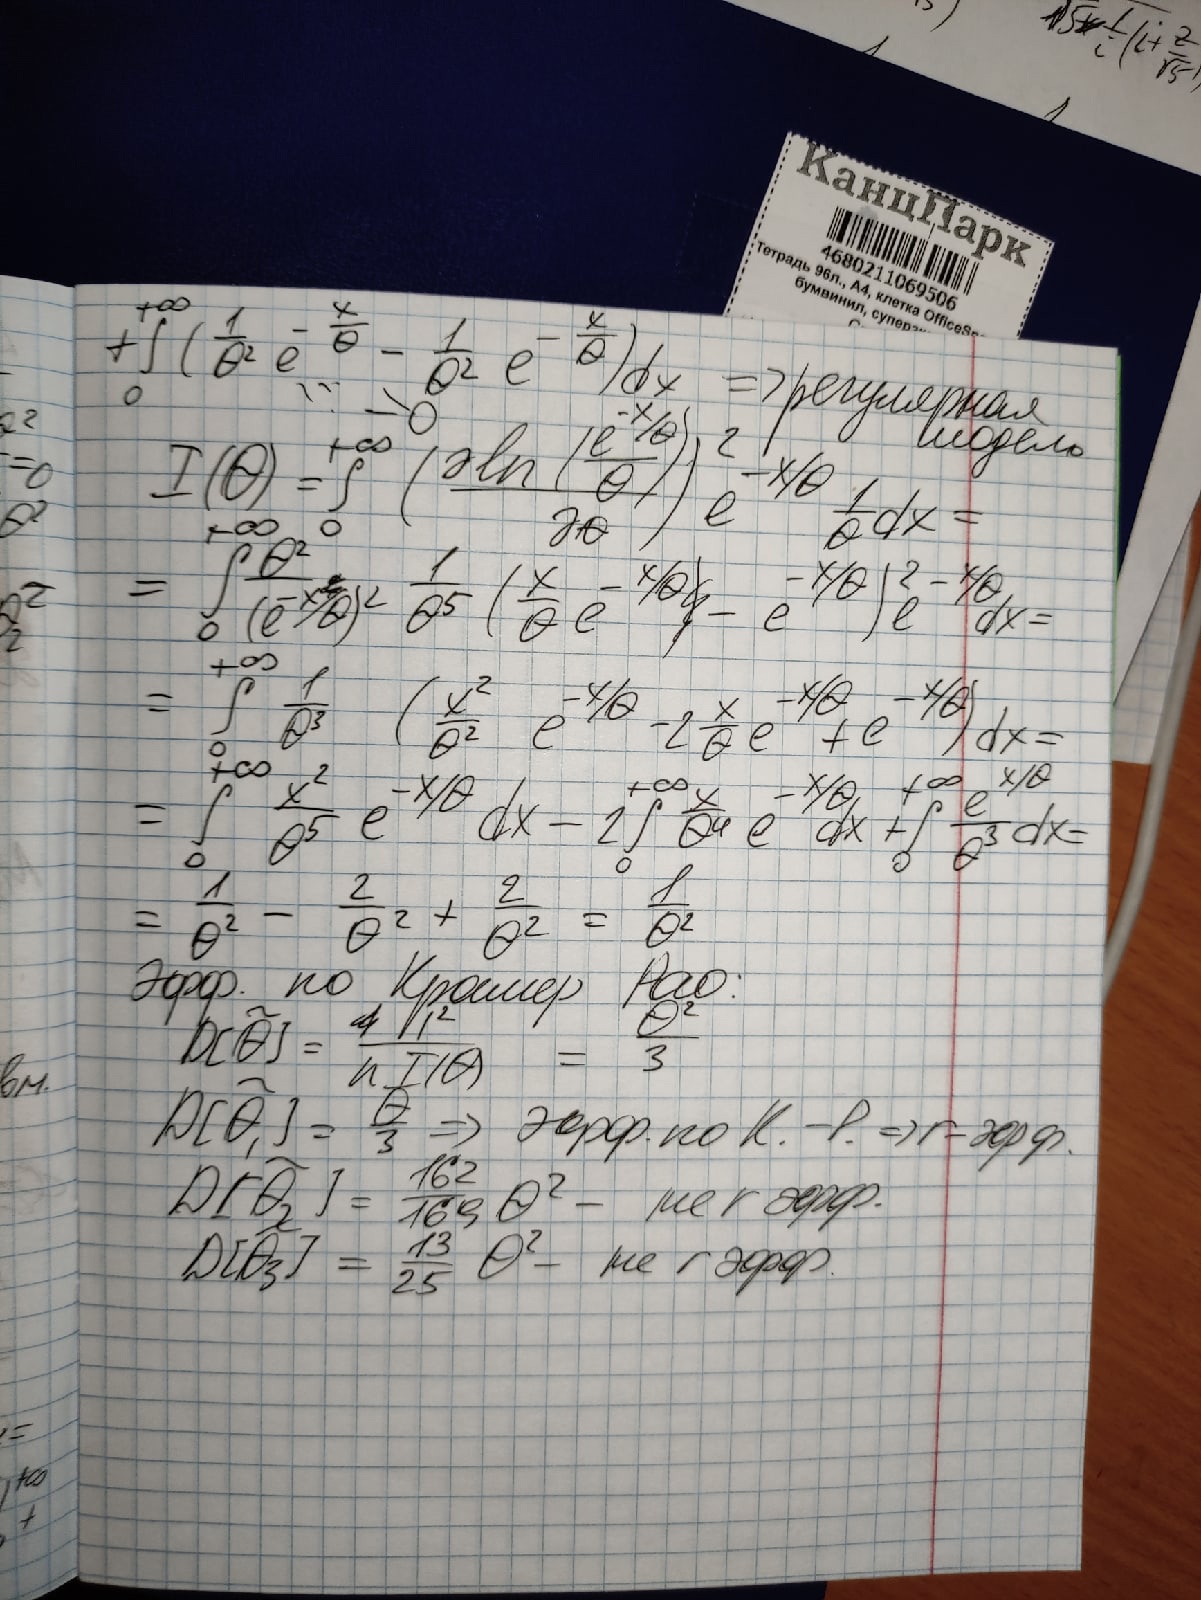 КанцПарк
4680211069506
Тетрадь 96л., А4, клетка OfficeSp
бумвинил, 
+∫₀^{+∞} (1/θ² e^{-x/θ} - 1/θ² e^{-x/θ})dx => регулярная
модель
= 0
I(θ) = ∫₀^{+∞} (∂ln(e^{-x/θ}/θ)/∂θ)² e^{-x/θ} 1/θ dx =
= ∫₀^{+∞} θ²/(e^{-x/θ})² 1/θ⁵ (x/θ e^{-x/θ} - e^{-x/θ})² e^{-x/θ} dx =
= ∫₀^{+∞} 1/θ³ (x²/θ² e^{-x/θ} - 2 x/θ e^{-x/θ} + e^{-x/θ}) dx =
= ∫₀^{+∞} x²/θ⁵ e^{-x/θ} dx - 2∫₀^{+∞} x/θ⁴ e^{-x/θ} dx + ∫₀^{+∞} e^{x/θ}/θ³ dx =
= 1/θ² - 2/θ² + 2/θ² = 1/θ²
Эфф. по Крамер Рао:
D[θ̃] = 1²/(n I(θ)) = θ²/3
D[θ̃₁] = θ/3 => эфф. по К.-Р. => r-эфф.
D[θ̃₂] = 162/169 θ² - не r эфф.
D[θ̃₃] = 13/25 θ² - не r эфф.